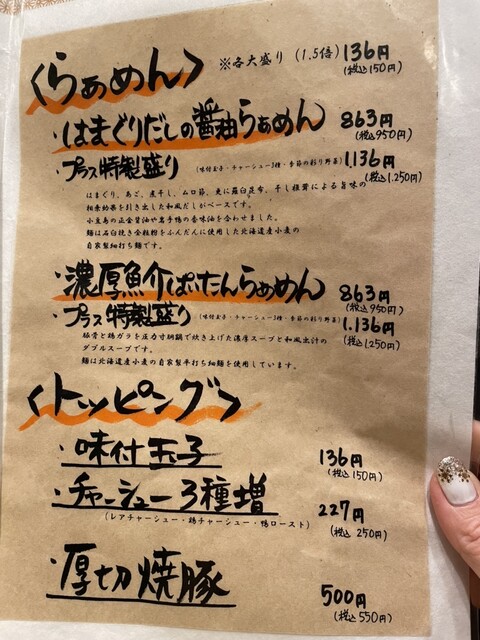 〈らぁめん〉 ※各大盛り (1.5倍) 136円
(税込150円)
・はまぐりだしの醤油らぁめん 863円
(税込950円)
・プラス特製盛り (味付玉子・チャーシュー3種・季節の彩り野菜) 1.136円
(税込1.250円)
はまぐり、あご、煮干し、ムロ節、更に羅臼昆布、干し椎茸による旨味の
相乗効果を引き出した和風だしがベースです。
小豆島の正金醤油や岩手鴨の香味油を合わせました。
麺は石臼挽き全粒粉をふんだんに使用した北海道産小麦の
自家製細打ち麺です。
・濃厚魚介ぱいたんらぁめん 863円
(税込950円)
・プラス特製盛り (味付玉子・チャーシュー3種・季節の彩り野菜) 1.136円
(税込1.250円)
豚骨と鶏ガラを圧力寸胴鍋で炊き上げた濃厚スープと和風出汁の
ダブルスープです。
麺は北海道産小麦の自家製平打ち細麺を使用しています。
〈トッピング〉
・味付玉子 136円
(税込150円)
・チャーシュー3種増 227円
(レアチャーシュー・鶏チャーシュー・鴨ロースト) (税込 250円)
・厚切焼豚 500円
(税込550円)